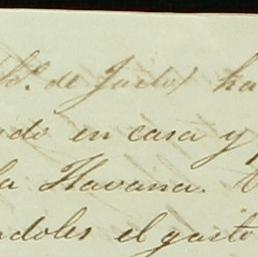 de Justo) ha
ndo en casa y
la Havana.
ndoles el gasto